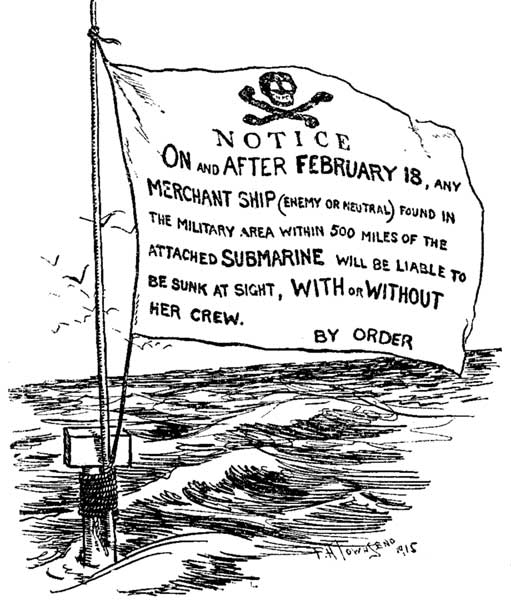 NOTICE
ON AND AFTER FEBRUARY 18, ANY
MERCHANT SHIP (ENEMY OR NEUTRAL) FOUND IN
THE MILITARY AREA WITHIN 500 MILES OF THE
ATTACHED SUBMARINE WILL BE LIABLE TO
BE SUNK AT SIGHT, WITH OR WITHOUT
HER CREW.
BY ORDER
F.H. TOWNSEND 1915